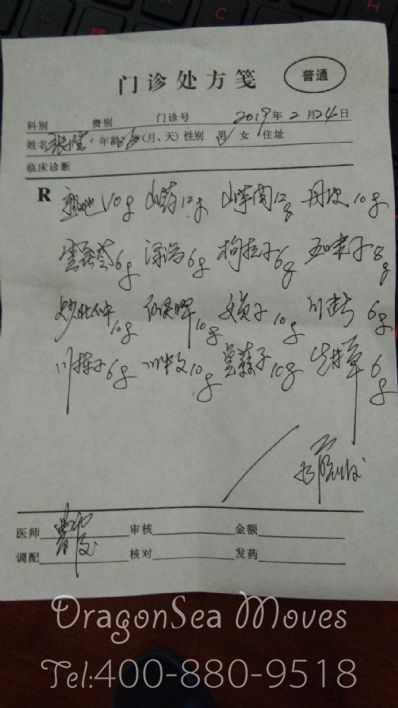 门诊处方笺
普通
科别 费别 门诊号 2019年2月24日
姓名 年龄 (月、天) 性别 男/女 住址
临床诊断
R 熟地10g 山药12g 山萸肉12g 丹皮10g
云茯苓6g 泽泻6g 枸杞子6g 五味子8g
炒杜仲10g 10g 女贞子10g 川 6g
川楝子6g 10g 莱菔子10g 生甘草6g
医师 审核 金额
调配 核对 发药
DragonSea Moves
Tel:400-880-9518